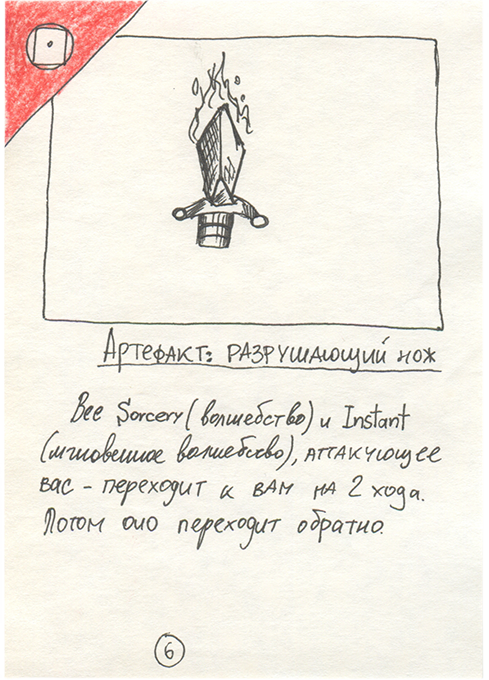 Артефакт: разрушающий нож
Все Sorcery (волшебство) и Instant
(мгновенное волшебство), аттакующее
вас - переходит к вам на 2 хода.
Потом оно переходит обратно.
6